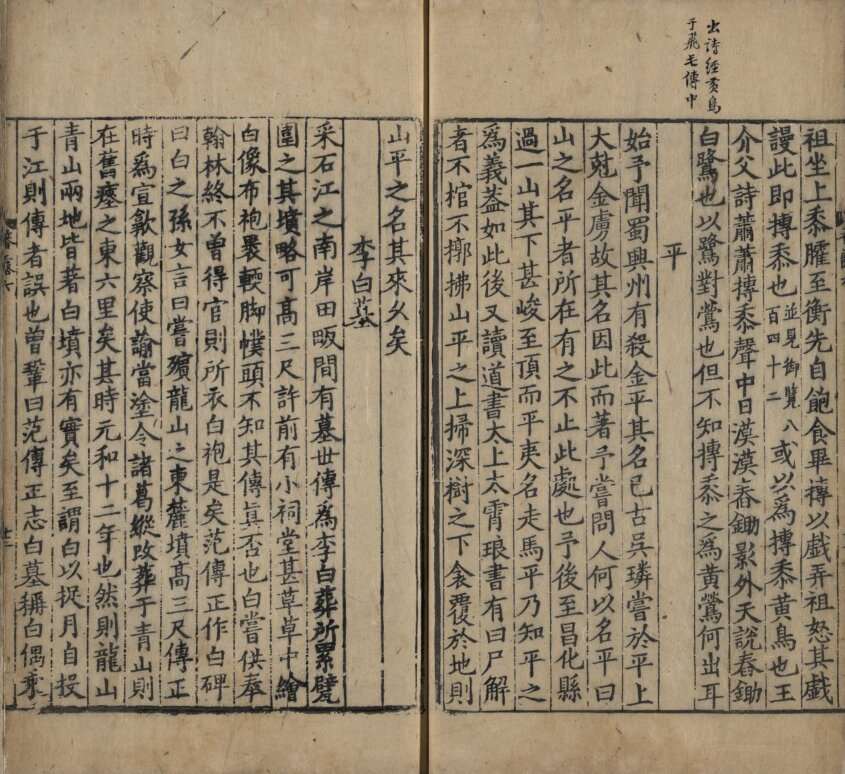 出詩經黃鳥
于飛毛傳中
祖坐上黍臛至衡先自飽食畢摶以戲弄祖怒其戲
謾此即摶黍也並見御覽八百四十二或以為摶黍黃鳥也王
介父詩蕭蕭摶黍聲中日漠漠舂鋤影外天說舂鋤
白鷺也以鷺對鶯也但不知摶黍之為黃鶯何出耳
平
始予聞蜀興州有殺金平其名已古吳璘嘗於平上
大尅金虜故其名因此而著予嘗問人何以名平曰
山之名平者所在有之不止此處也予後至昌化縣
過一山其下甚峻至頂而平夷名走馬平乃知平之
為義蓋如此後又讀道書太上太霄琅書有曰尸解
者不棺不槨拂山平之上掃深樹之下衾覆於地則
山平之名其來久矣
李白墓
采石江之南岸田畈間有墓世傳為李白葬所累甓
圍之其墳略可高三尺許前有小祠堂甚草草中繪
白像布袍裹軟脚幞頭不知其傳真否也白嘗供奉
翰林終不曾得官則所衣白袍是矣范傳正作白碑
曰白之孫女言曰嘗殯龍山之東麓墳高三尺傳正
時為宣歙觀察使諭當塗令諸葛縱改葬于青山則
在舊瘞之東六里矣其時元和十二年也然則龍山
青山兩地皆著白墳亦有實矣至謂白以捉月自投
于江則傳者誤也曾鞏曰范傳正志白墓稱白偶乘